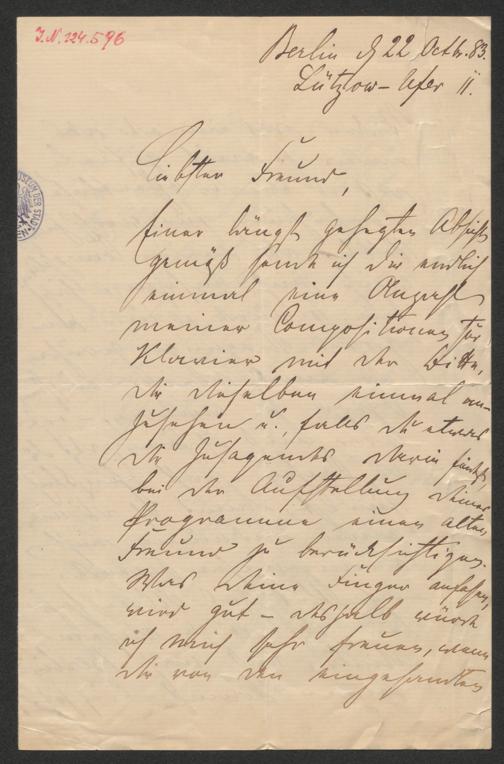 J.N. 124.596
Berlin d 22 Octbr. 83.
Lützow-Ufer 11.
Liebster Freund,
Einer längst gehegten Absicht
gemäß sende ich Dir endlich
einmal eine Anzahl
meiner Compositionen für
Klavier mit der Bitte,
Dir dieselben einmal an-
zusehen u., falls Du etwas
Dir Zusagendes darin findest,
bei der Aufstellung Deiner
Programme einen alten
Freund zu berücksichtigen.
Was Deine Finger anfassen,
wird gut – deshalb würde
ich mich sehr freuen, wenn
Du von den eingesandten